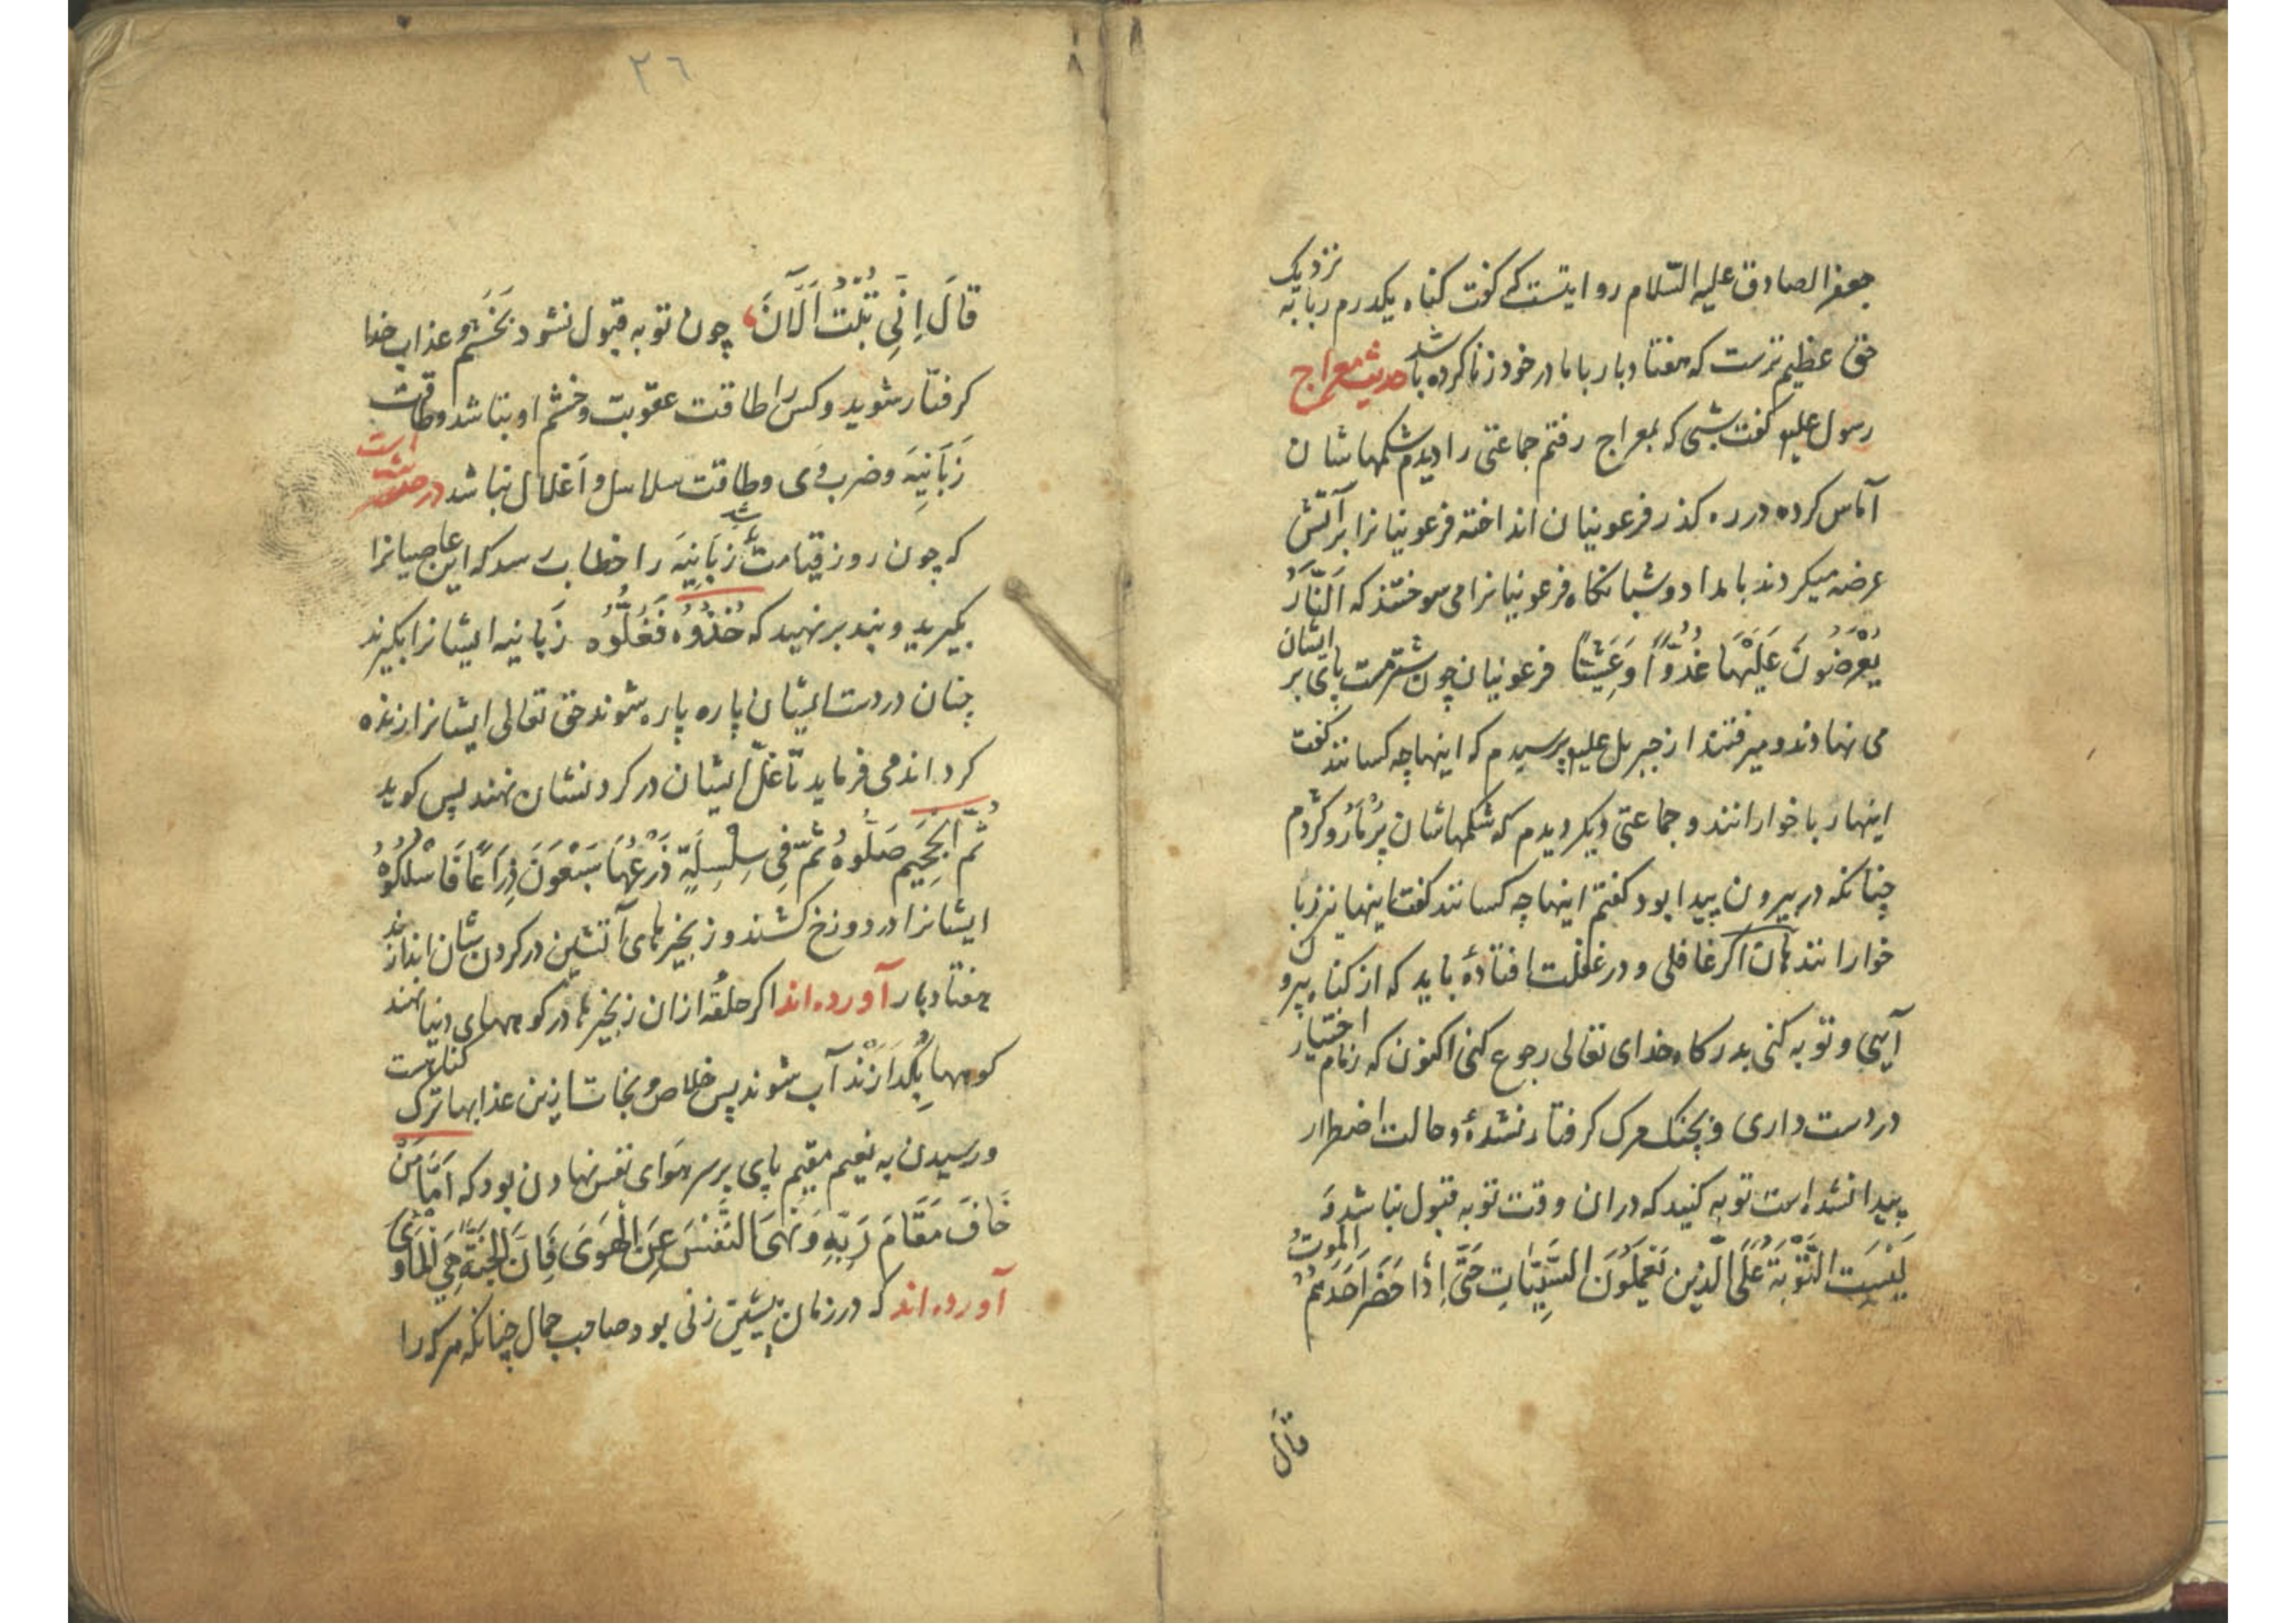 جعفر الصادق علیه السّلام روایتست که کفت کناه یکدرم ربا به نزدیک
حق عظیم ترست که هفتاد بار باما در خود زنا کرده باشد حدیث معراج
رسول علیه کفت شبی که بمعراج رفتم جماعتی را دیدم شکمهاشان
آماس کرده در ره کذر فرعونیان انداخته فرعونیانرا بر آتش
عرضه میکردند بامداد و شبانکاه فرعونیانرا می سوختند که اَلنَّارُ
یُعْرَضُونَ عَلَیْهَا غُدُوًّا وَعَشِیًّا فرعونیان چون شتر مست پای بر ایشان
می نهادند و میرفتند از جبریل علیه پرسیدم که اینها چه کسانند کفت
اینها ربا خوارانند و جماعتی دیکر دیدم که شکمهاشان پُر مَار و کژدم
چنانکه در بیرون پیدا بود کفتم اینها چه کسانند کفت اینها نیز ربا
خوارانند هان اکر غافلی و در غفلت افتادهٔ باید که از کناه بیرو
آیی و توبه کنی بدرکاه خدای تعالی رجوع کنی اکنون که زمام اختیار
در دست داری و بچنک مرک کرفتار نشدهٔ و حالت اضطرار
پیدا نشده است توبه کنید که دران وقت توبه قبول نباشد وَ
لَیْسَتِ التَّوْبَةُ عَلَی الَّذِینَ یَعْمَلُونَ السَّیِّئَاتِ حَتَّی اِذَا حَضَرَ اَحَدَهُمُ الْمَوْتُ
قال
٢٦
قَالَ اِنِّی تُبْتُ اَلْآنَ چون توبه قبول نشود بخَشم و عذاب خدا
کرفتار شوید و کس را طاقت عقوبت و خشم او نباشد و طاقت
زَبَانِیَه و ضرب وَی و طاقت سلاسل و اَغلال نباشد در حدیث است
که چون روز قیامت شد زبَانِیَه را خطاب رسد که این عاصیانرا
بکیرید و بند برنهید که خُذُوهُ فَغُلُّوهُ زبانیه ایشانرا بکیرند
چنان در دست ایشان پاره پاره شوند حق تعالی ایشانرا زنده
کرداند می فرماید تا غلّ ایشان در کردنشان نهند پس کوید
ثُمَّ الْجَحِیمَ صَلُّوهُ ثُمَّ فِی سِلْسِلَةٍ ذَرْعُهَا سَبْعُونَ ذِرَاعًا فَاسْلُکُوهُ
ایشانرا در دوزخ کشند و زنجیرهای آتشین در کردن شان اندازند
هفتاد بار آورده اند اکر حلقهٔ ازان زنجیرها در کوههای دنیا نهند
کوهها بِکُدَازَنْد آب شوند پس خلاص و نجات ازین عذابها ترک کناهست
و رسیدن به نعیم مقیم پای بر سر هوای نفس نهادن بود که اَمَّا مَنْ
خَافَ مَقَامَ رَبِّهِ وَنَهَی النَّفْسَ عَنِ الْهَوَی فَاِنَّ الْجَنَّةَ هِیَ الْمَاْوَی
آورده اند که در زمان پیشین زنی بود صاحب جمال چنانکه هرکه را